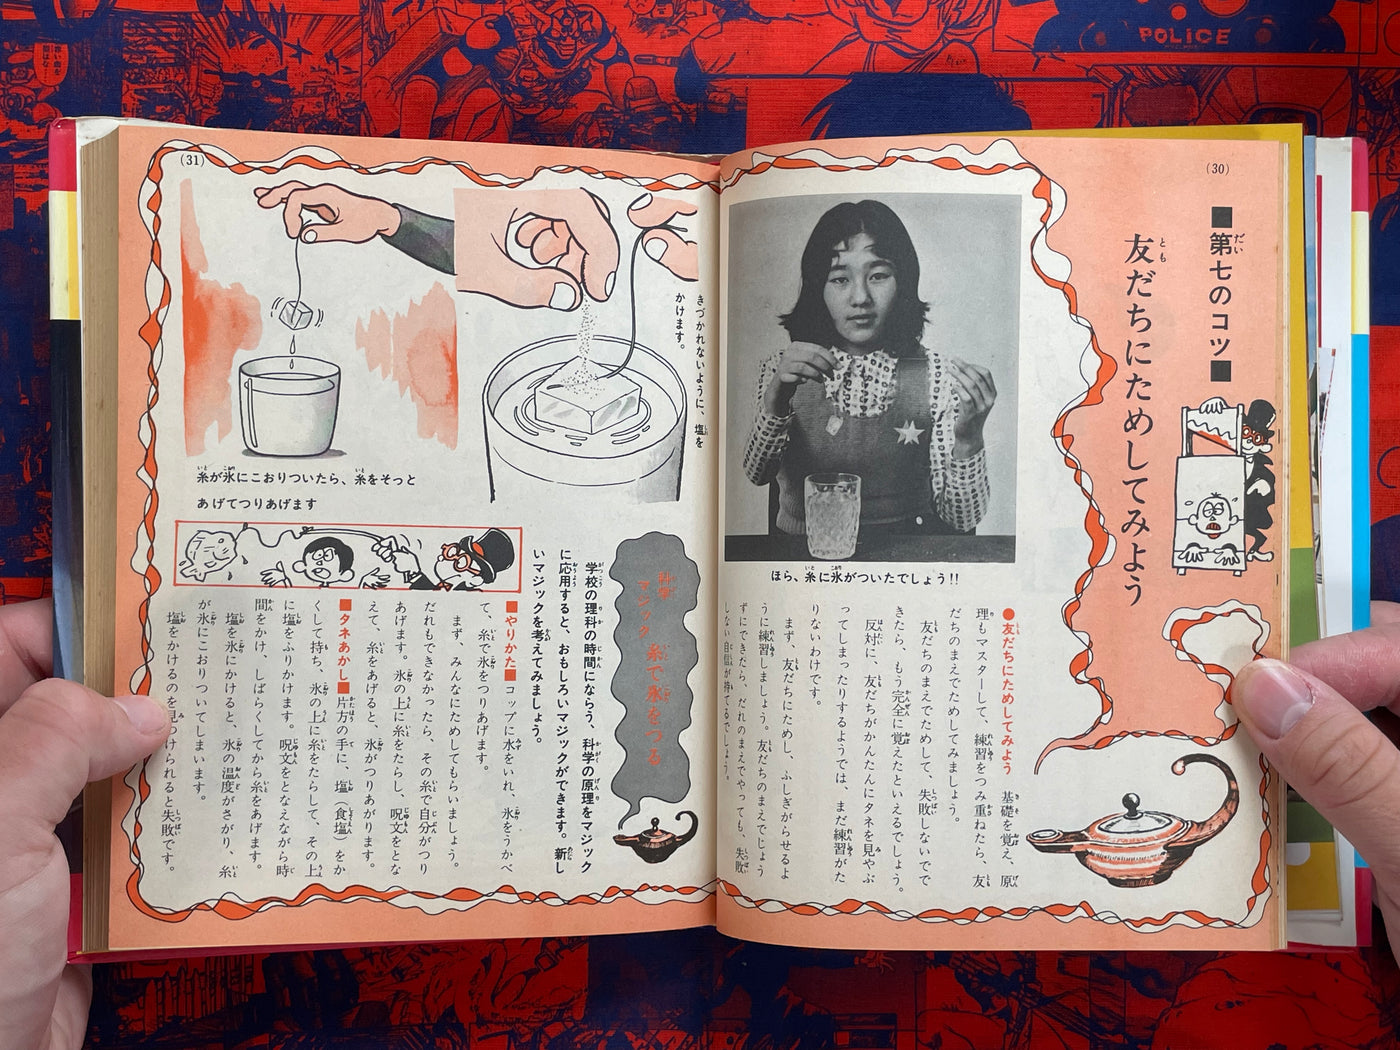 POLICE
(30)
■第七のコツ■
友だちにためしてみよう
ほら、糸に氷がついたでしょう!!
●友だちにためしてみよう 基礎を覚え、原
理もマスターして、練習をつみ重ねたら、友
だちのまえでためしてみましょう。
友だちのまえでためして、失敗しないでで
きたら、もう完全に覚えたといえるでしょう。
反対に、友だちがかんたんにタネを見やぶ
ってしまったりするようでは、まだ練習がた
りないわけです。
まず、友だちにためし、ふしぎがらせるよ
うに練習しましょう。友だちのまえでじょう
ずにできたら、だれのまえでやっても、失敗
しない自信が持てるでしょう。
(31)
きづかれないように、塩を
かけます。
糸が氷にこおりついたら、糸をそっと
あげてつりあげます
科学
マジック 糸で氷をつる
学校の理科の時間にならう、科学の原理をマジック
に応用すると、おもしろいマジックができます。新し
いマジックを考えてみましょう。
■やりかた■ コップに水をいれ、氷をうかべ
て、糸で氷をつりあげます。
まず、みんなにためしてもらいましょう。
だれもできなかったら、その糸で自分がつり
あげます。氷の上に糸をたらし、呪文をとな
えて、糸をあげると、氷がつりあがります。
■タネあかし■ 片方の手に、塩(食塩)をか
くして持ち、氷の上に糸をたらして、その上
に塩をふりかけます。呪文をとなえながら時
間をかけ、しばらくしてから糸をあげます。
塩を氷にかけると、氷の温度がさがり、糸
が氷にこおりついてしまいます。
塩をかけるのを見つけられると失敗です。